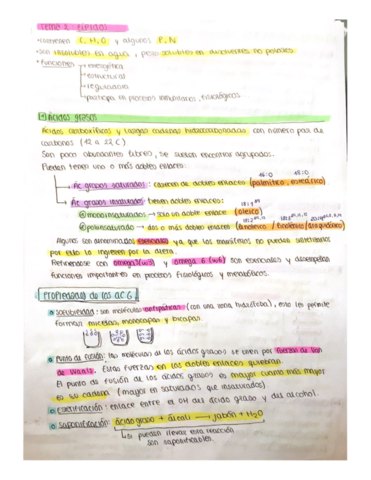 Tema 2: Lípidos
• Contienen C, H, O y algunos P, N
• Son insolubles en agua, pero solubles en disolventes no polares.
• Funciones → energética
→ estructural
→ reguladora
→ participa en procesos inmunitarios, fisiológicos
Ácidos grasos
Ácidos carboxílicos y largas cadenas hidrocarbonadas con número par de
carbonos (12 a 22 C)
Son poco abundantes libres, se suelen encontrar agrupados.
Pueden tener uno o más dobles enlaces:
16:0 18:0
→ Ac. grasos saturados: carecen de dobles enlaces (palmítico, esteárico)
→ Ac. grasos insaturados: tienen dobles enlaces:
monoinsaturados → solo un doble enlace (oleico)
poliinsaturado → dos o más dobles enlaces (linoleico / linolénico / araquidónico)
Algunos son denominados esenciales ya que los mamíferos no pueden sintetizarlos
por ello la ingieren por la dieta.
omega 3 (w3) y omega 6 (w6) son esenciales y desempeñan
funciones importantes en procesos fisiológicos y metabólicos.
Propiedades de los ac. G
Solubilidad: son moléculas antipáticas (con una zona hidrófoba), esto les permite
formar micelas, monocapas y bicapas.
Punto de fusión: las moléculas de los ácidos grasos se unen por fuerzas de Van
der Waals. Estas fuerzas en los dobles enlaces
El punto de fusión de los ácidos grasos es mayor cuanto más mayor
es su cadena (mayor en saturados que insaturados)
Esterificación: enlace entre el OH del ácido graso y del alcohol.
Saponificación: ácido graso + álcali → jabón + H2O
→ si pueden llevar esta reacción
son saponificables.